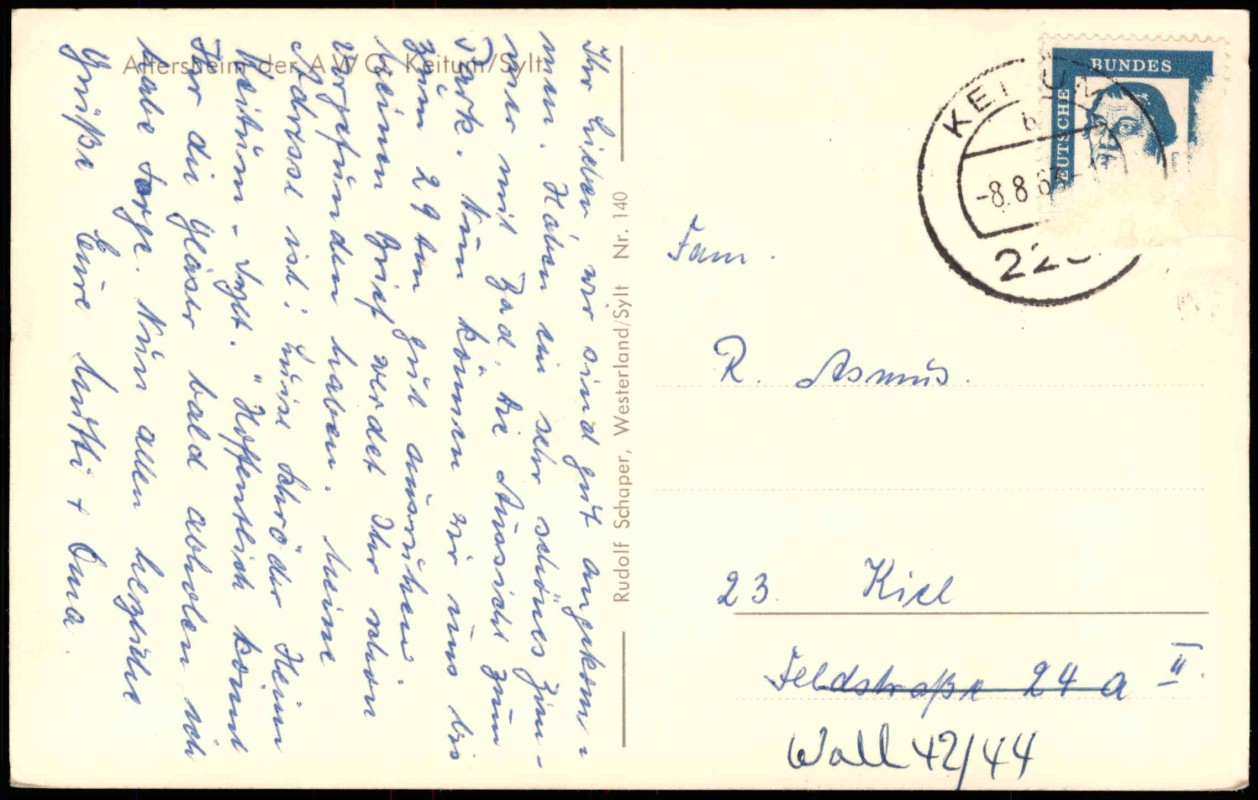 Altersheim der AWO, Keitum/Sylt
Ihr Lieben, wir sind gut angekom-
men. Haben ein sehr schönes Zim-
mer mit Bad. Die Aussicht zum
Park. Nun können wir uns bis
zum 29ten gut ausruhen.
Meinen Brief werdet Ihr schon
vorgefunden haben. Meine
Adresse ist: Luise Schröder Heim
Keitum - Sylt. " Hoffentlich könnt
Ihr die Gläser bald abholen ich
habe Sorge. Nun allen herzliche
Grüße Eure Mutti + Oma.
Rudolf Schaper, Westerland/Sylt Nr. 140
BUNDES
DEUTSCHE
KEITUM
b
-8.8.63-
Fam.
R. Asmus.
23. Kiel
Feldstraße 24 a II.
Wall 42/44